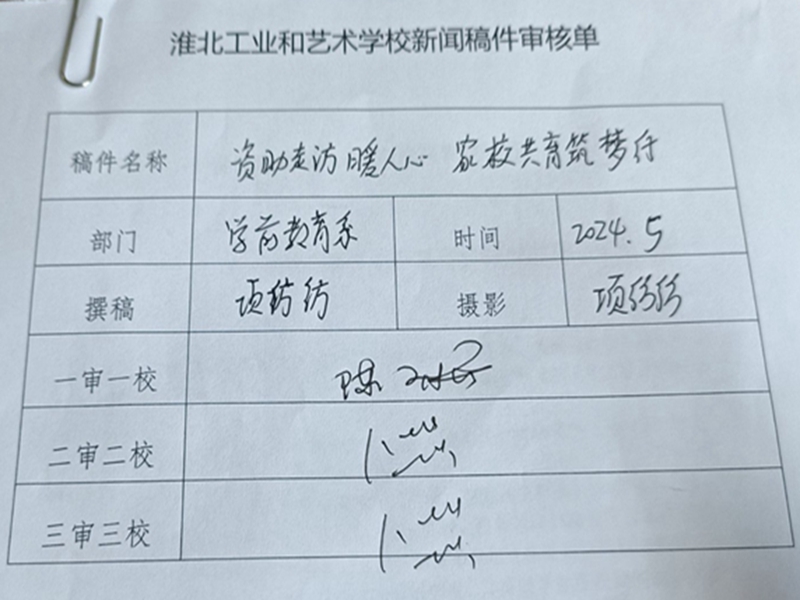 淮北工业和艺术学校新闻稿件审核单
稿件名称 资助走访暖人心 家校共育筑梦行
部门 学前教育系 时间 2024.5
撰稿 项纺纺 摄影 项纺纺
一审一校 陈
二审二校
三审三校